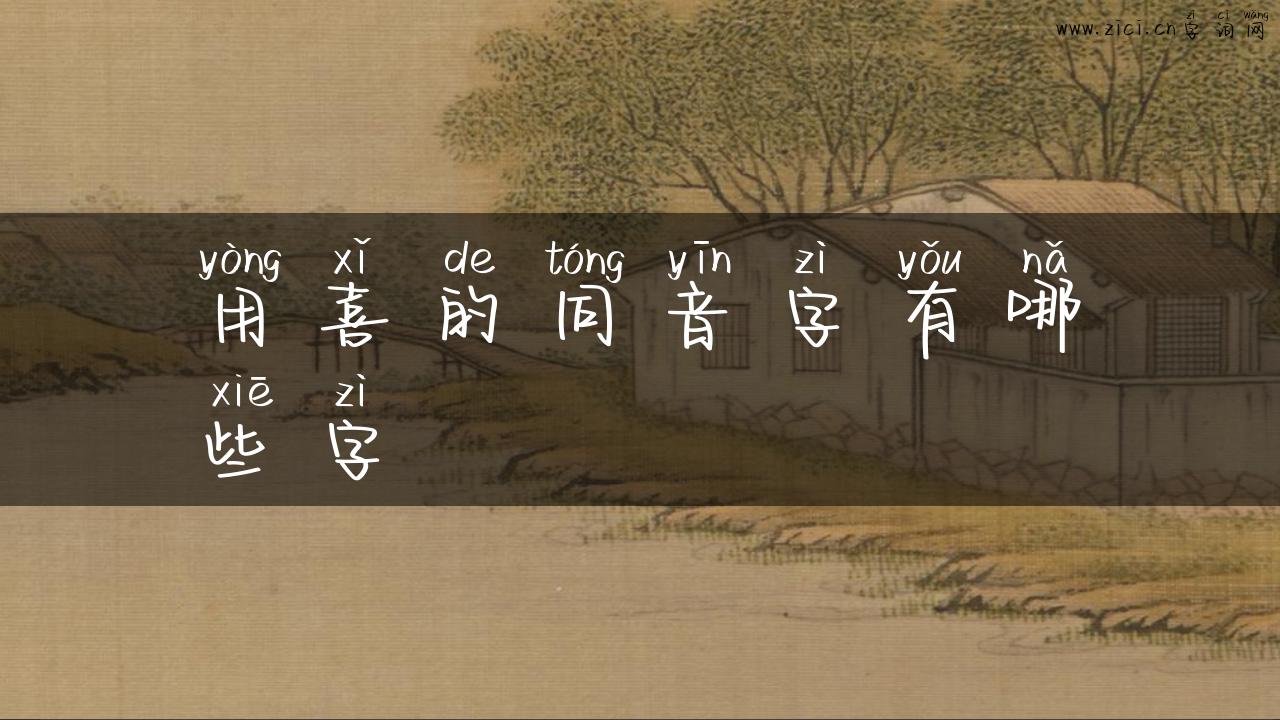 zì cí wǎng
www.zici.cn 字词网
yòng xǐ de tóng yīn zì yǒu nǎ
用喜的同音字有哪
xiē zì
些字